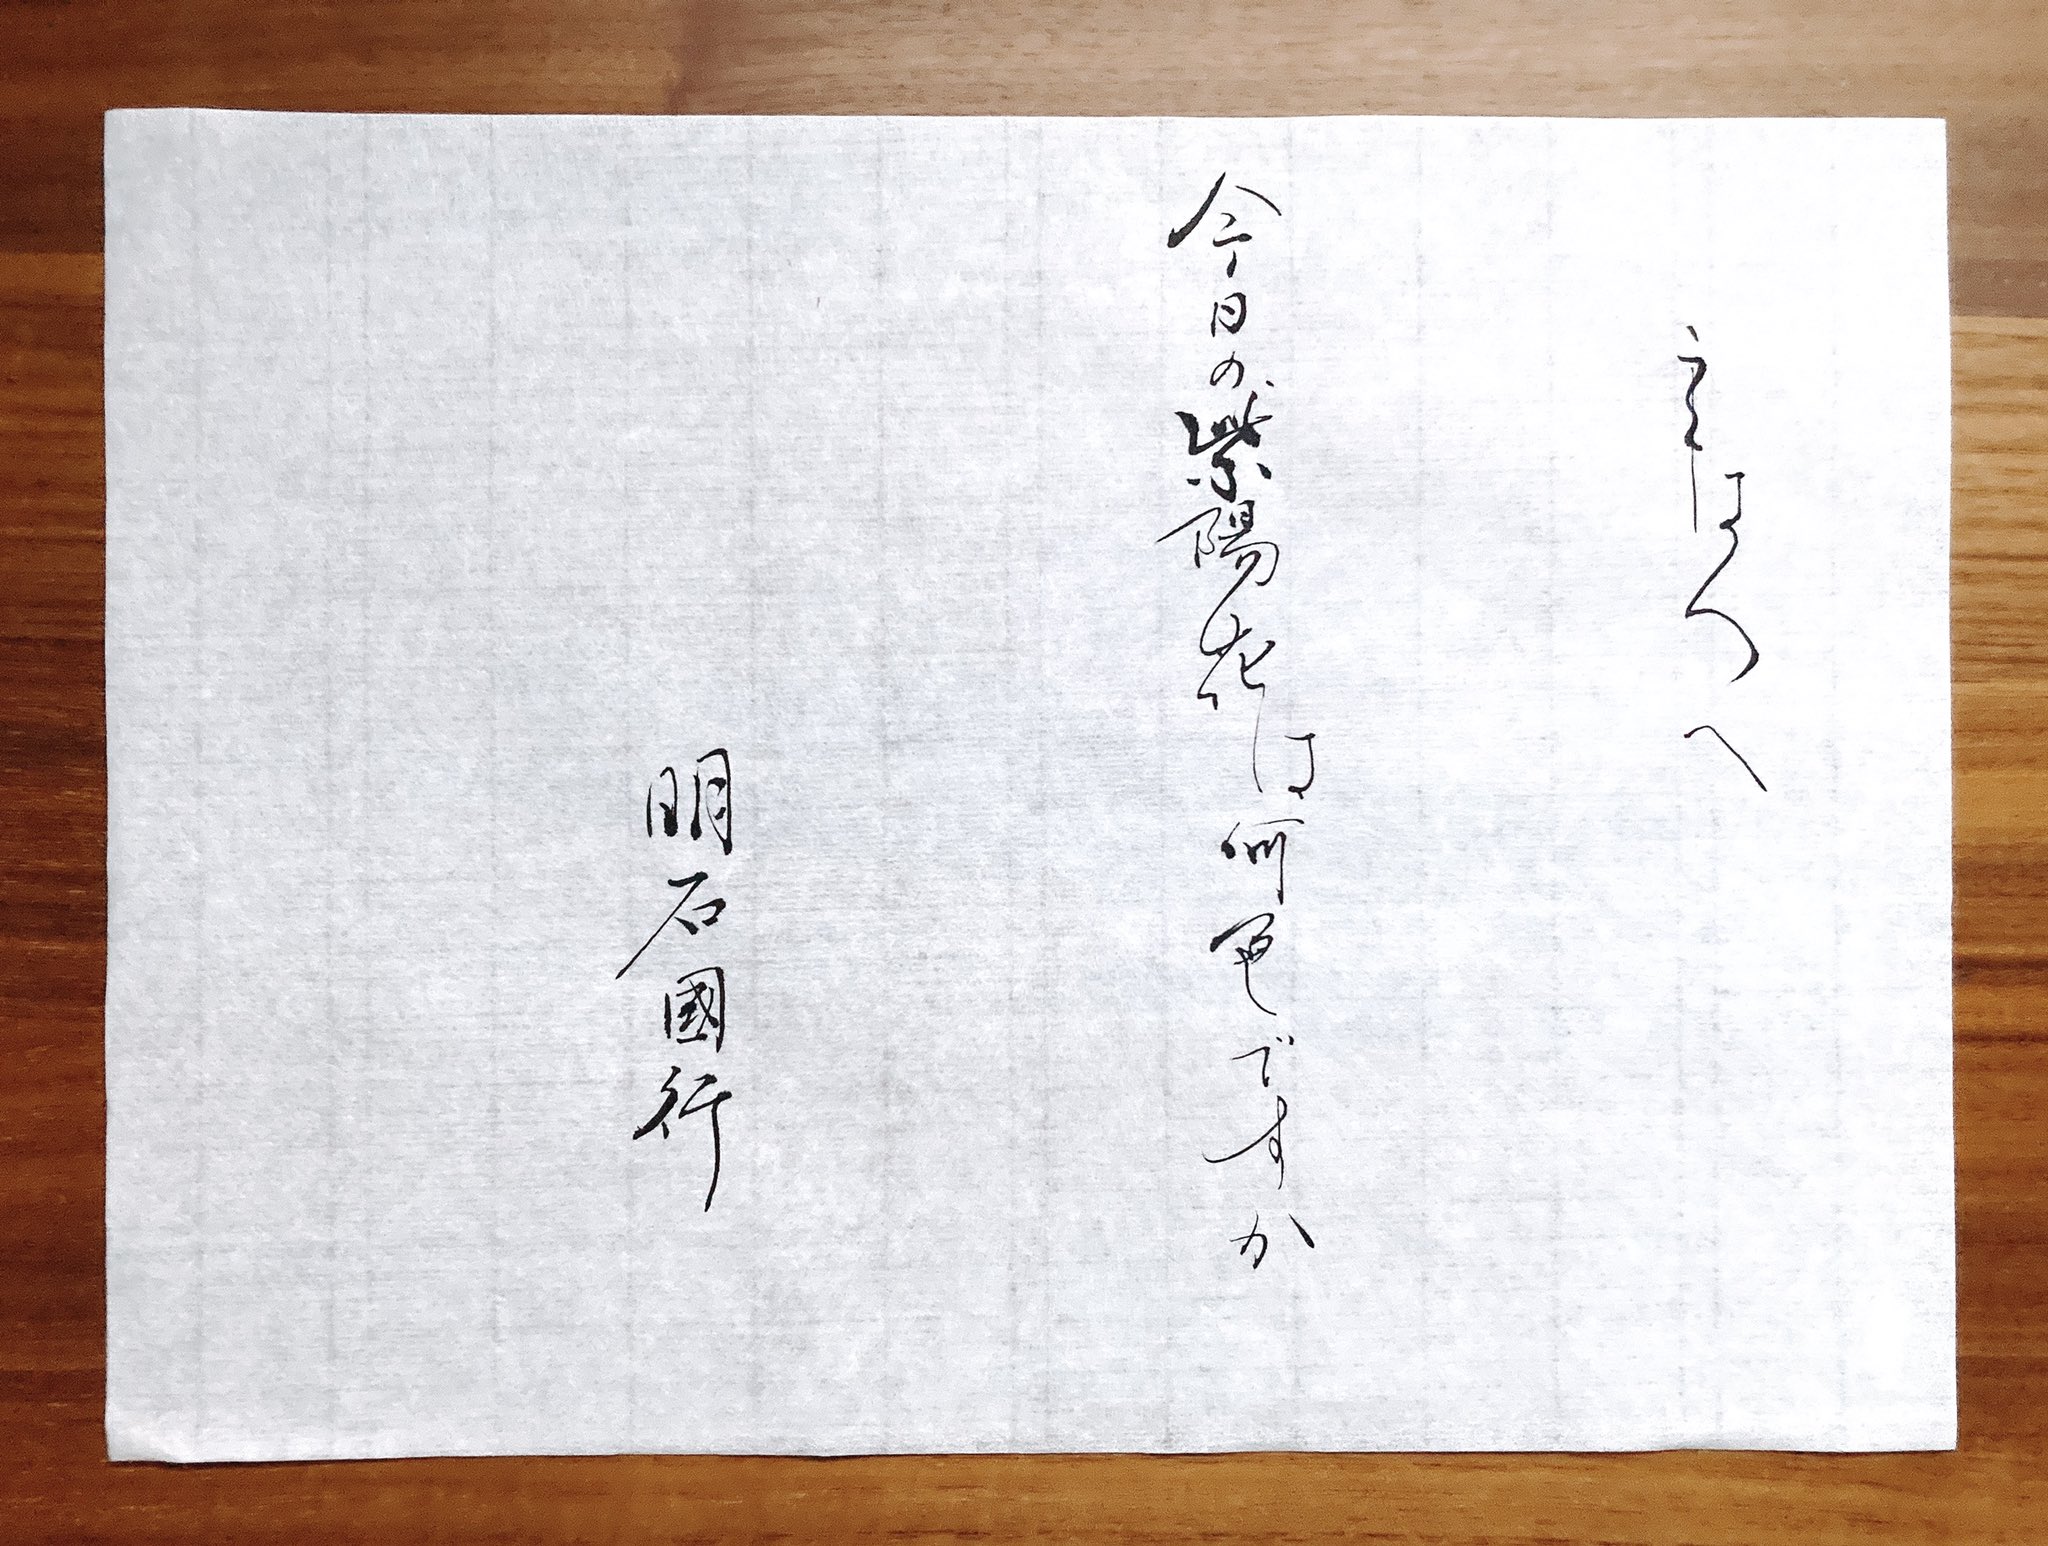 主はんへ
今日の紫陽花は何色ですか
明石國行